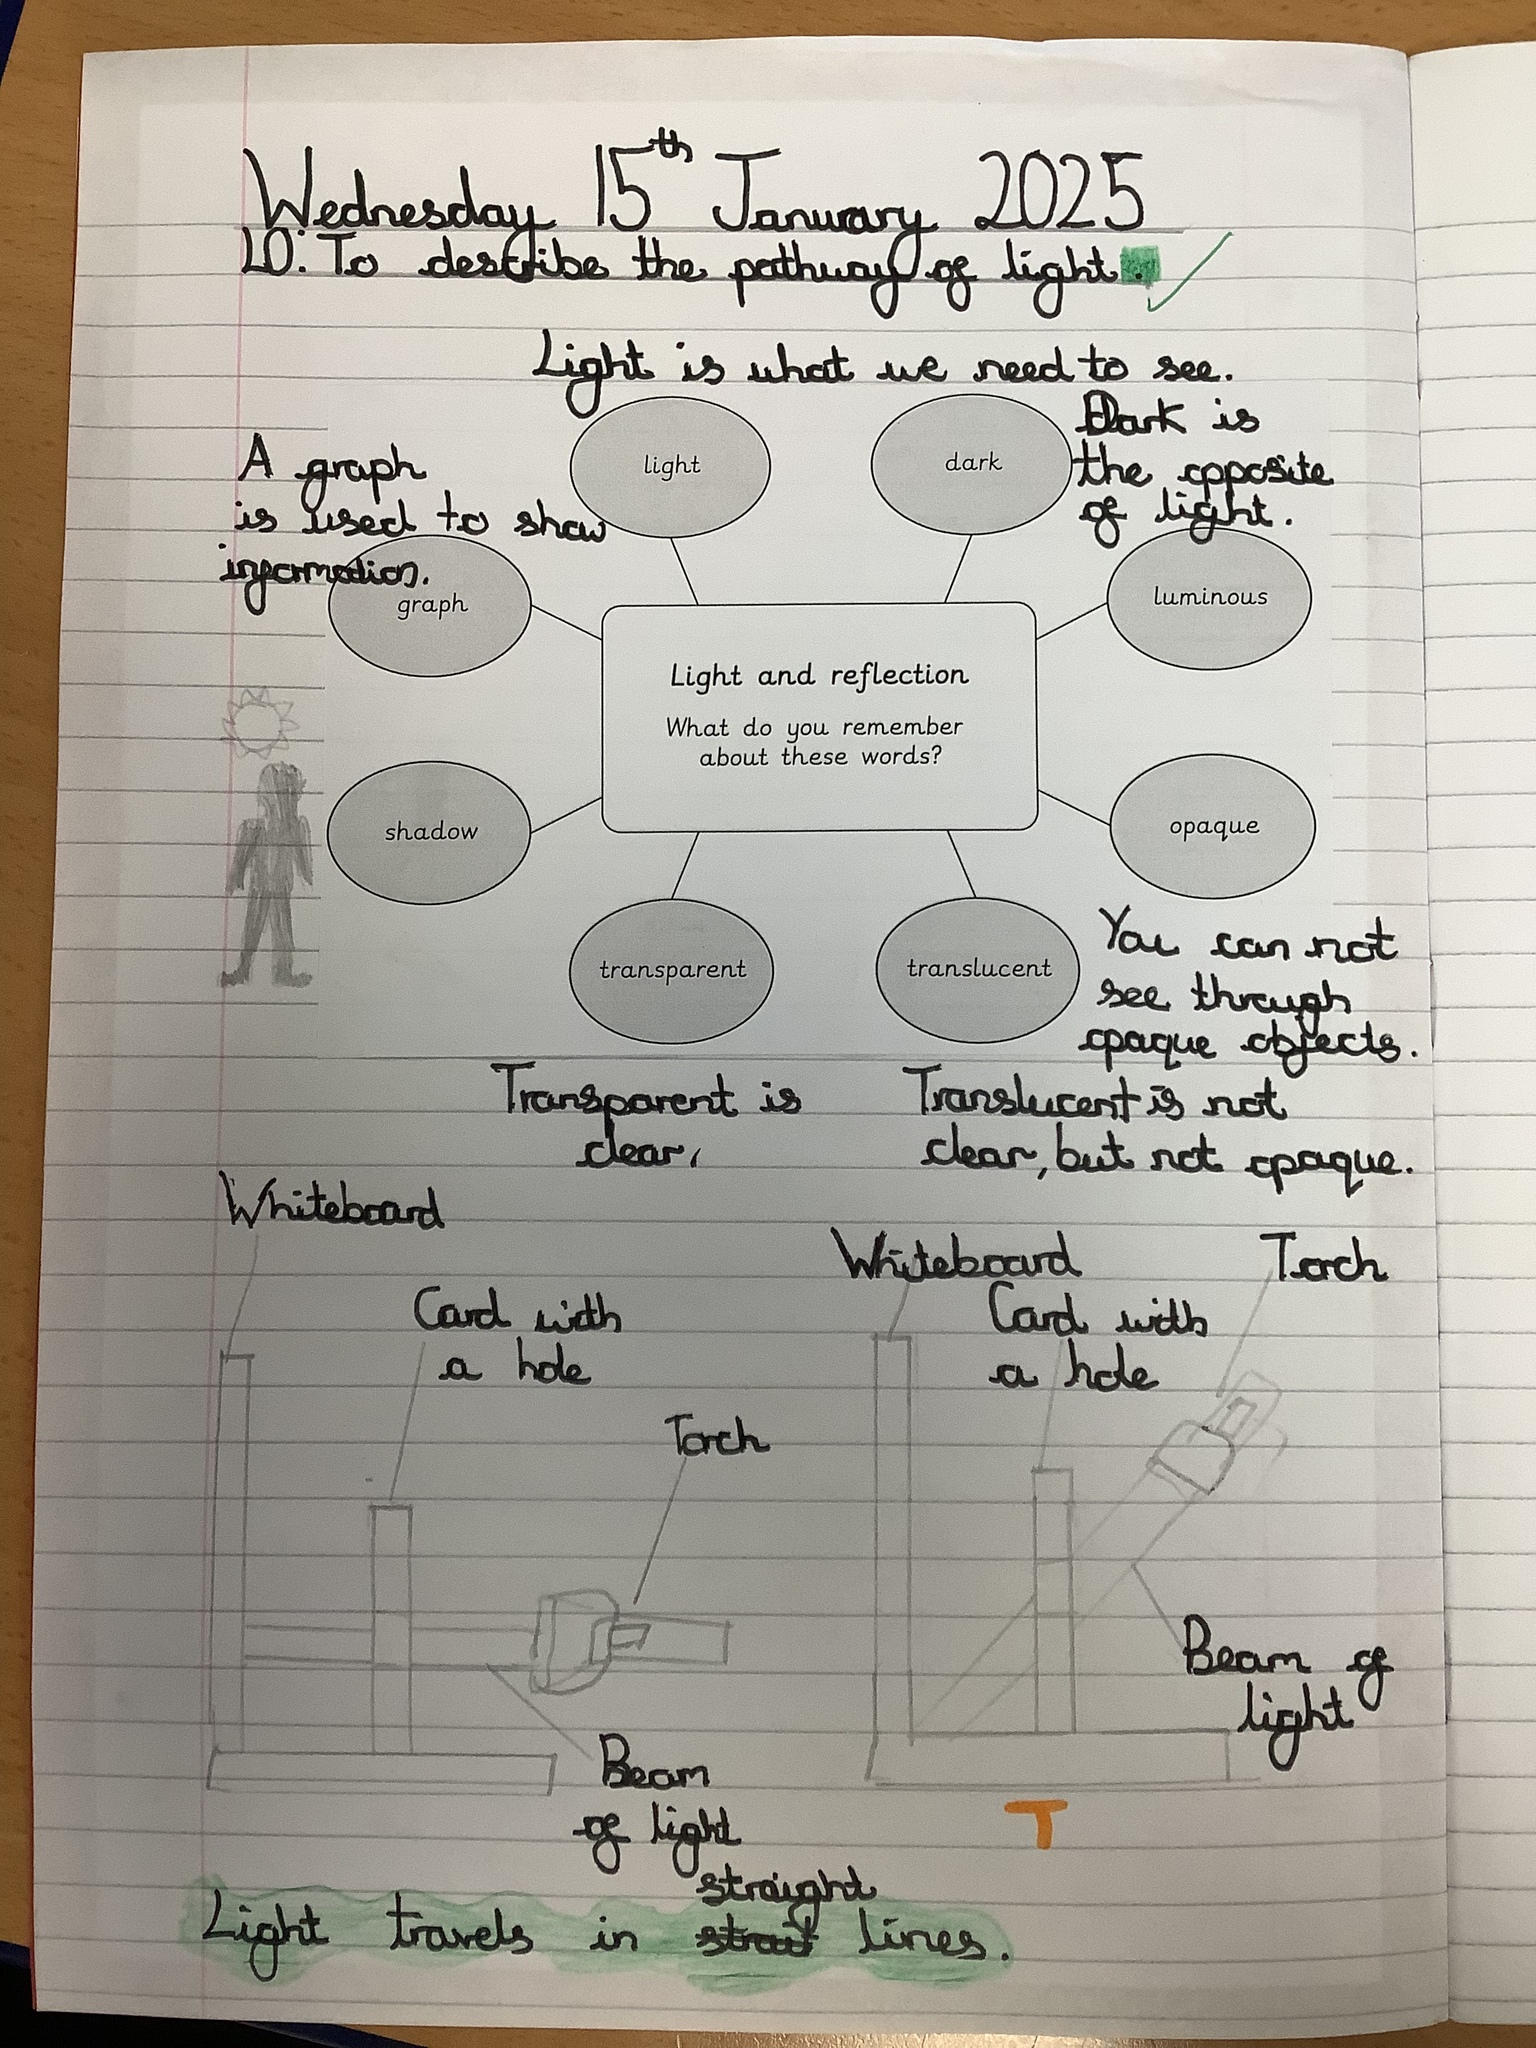 Wednesday 15th January 2025
LO: To describe the pathway of light.
Light is what we need to see.
Dark is
the opposite
of light.
A graph
is used to show
information.
light
dark
graph
luminous
Light and reflection
What do you remember
about these words?
shadow
opaque
transparent
translucent
You can not
see through
opaque objects.
Transparent is
clear,
Translucent is not
clear, but not opaque.
Whiteboard
Card with
a hole
Torch
Beam
of light
Whiteboard
Torch
Card with
a hole
Beam of
light
T
straight
Light travels in strait lines.